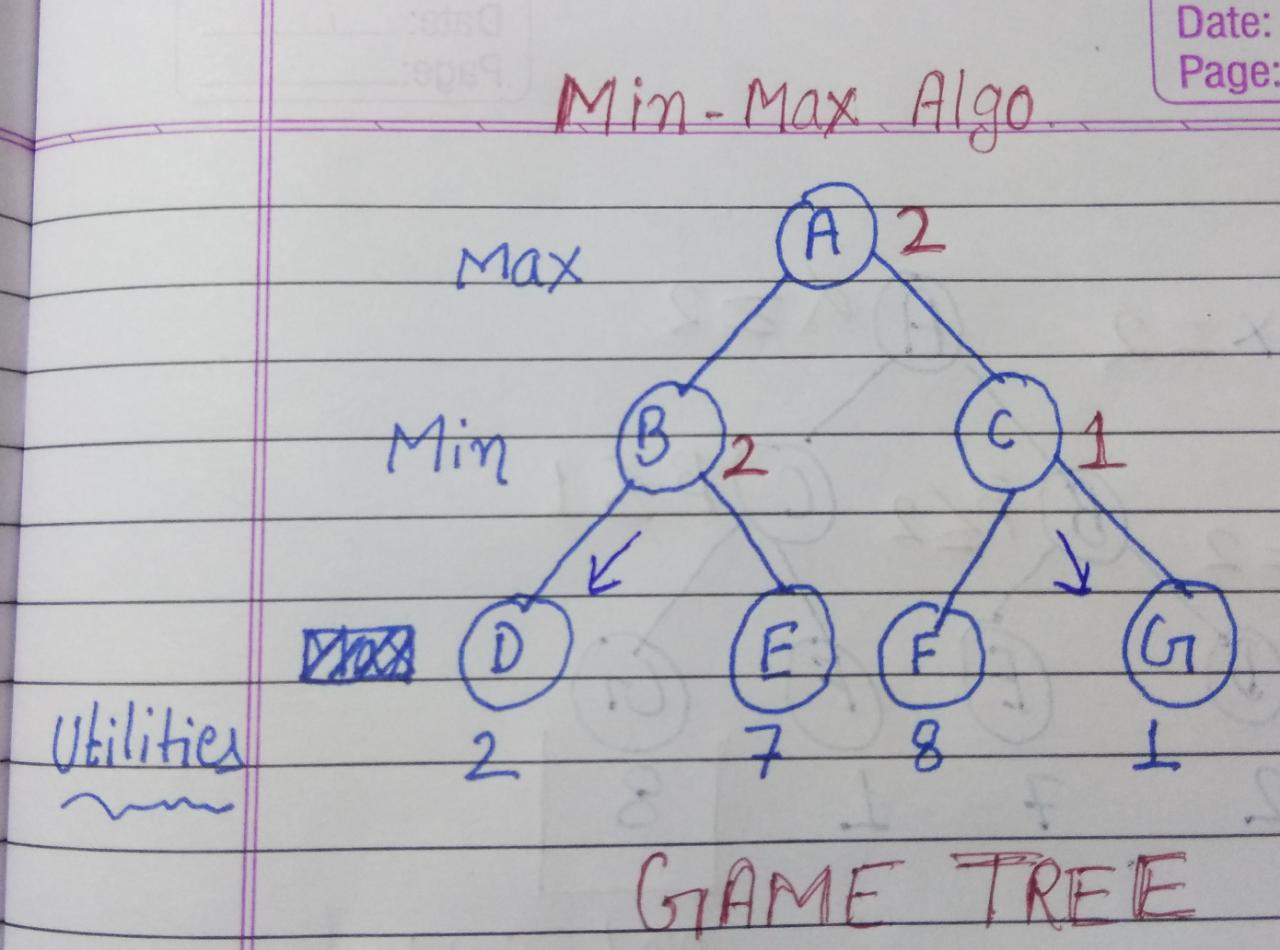 Date:
Page:
Min-Max Algo.
A 2
Max
B 2 C 1
Min
D E F G
Utilities 2 7 8 1
GAME TREE